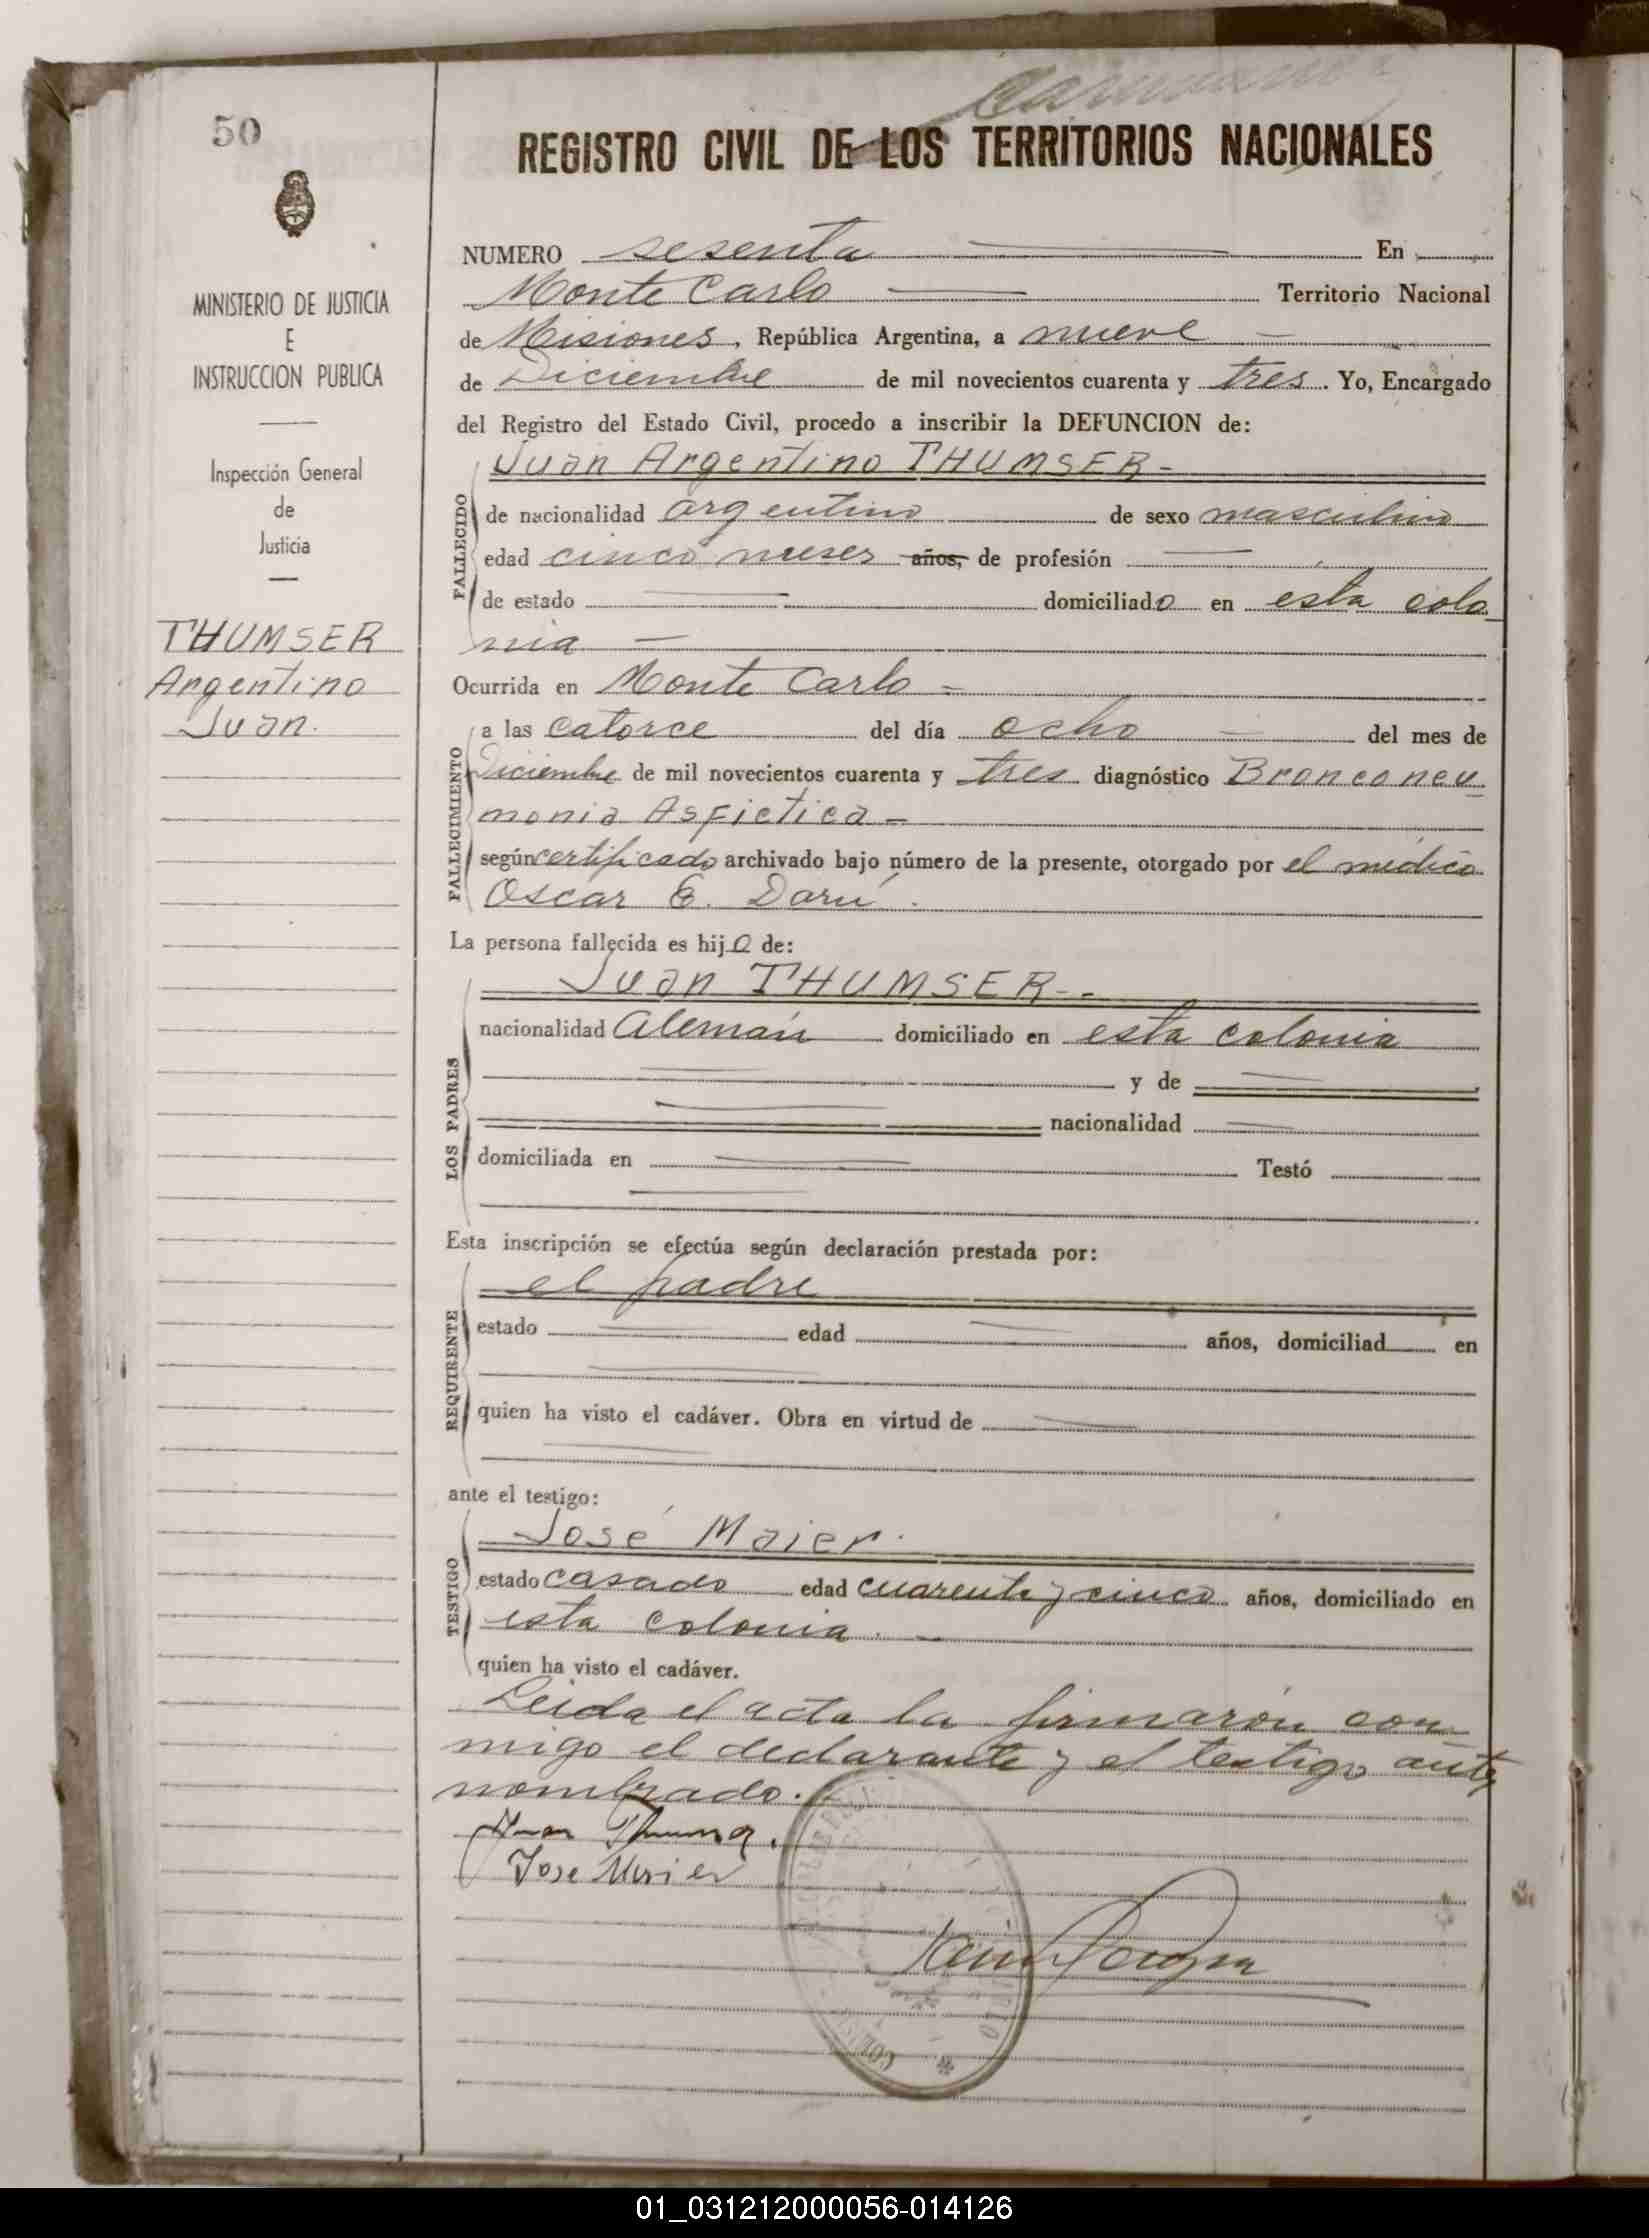 50
REGISTRO CIVIL DE LOS TERRITORIOS NACIONALES
MINISTERIO DE JUSTICIA
E
INSTRUCCION PUBLICA
Inspección General
de
Justicia
THUMSER
Argentino
Juan.
NUMERO sesenta En
Monte Carlo Territorio Nacional
de Misiones, República Argentina, a nueve
de Diciembre de mil novecientos cuarenta y tres. Yo, Encargado
del Registro del Estado Civil, procedo a inscribir la DEFUNCION de:
Juan Argentino THUMSER-
FALLECIDO
de nacionalidad argentino de sexo masculino
edad cinco meses años, de profesión
de estado domiciliado en esta colo
nia
Ocurrida en Monte Carlo
FALLECIMIENTO
a las catorce del día ocho del mes de
Diciembre de mil novecientos cuarenta y tres diagnóstico Bronconeu
monia Asfictica-
según certificado archivado bajo número de la presente, otorgado por el médico
Oscar E. Darú.
La persona fallecida es hijo de:
LOS PADRES
Juan THUMSER-
nacionalidad Alemán domiciliado en esta colonia
y de
nacionalidad
domiciliada en Testó
Esta inscripción se efectúa según declaración prestada por:
REQUIRENTE
el padre
estado edad años, domiciliad en
quien ha visto el cadáver. Obra en virtud de
ante el testigo:
TESTIGO
José Maier.
estado casado edad cuarenta y cinco años, domiciliado en
esta colonia.
quien ha visto el cadáver.
Leida el acta la firmarón con
migo el declarante y el testigo ante
nombrado.
Juan
Jose Maier
01_031212000056-014126